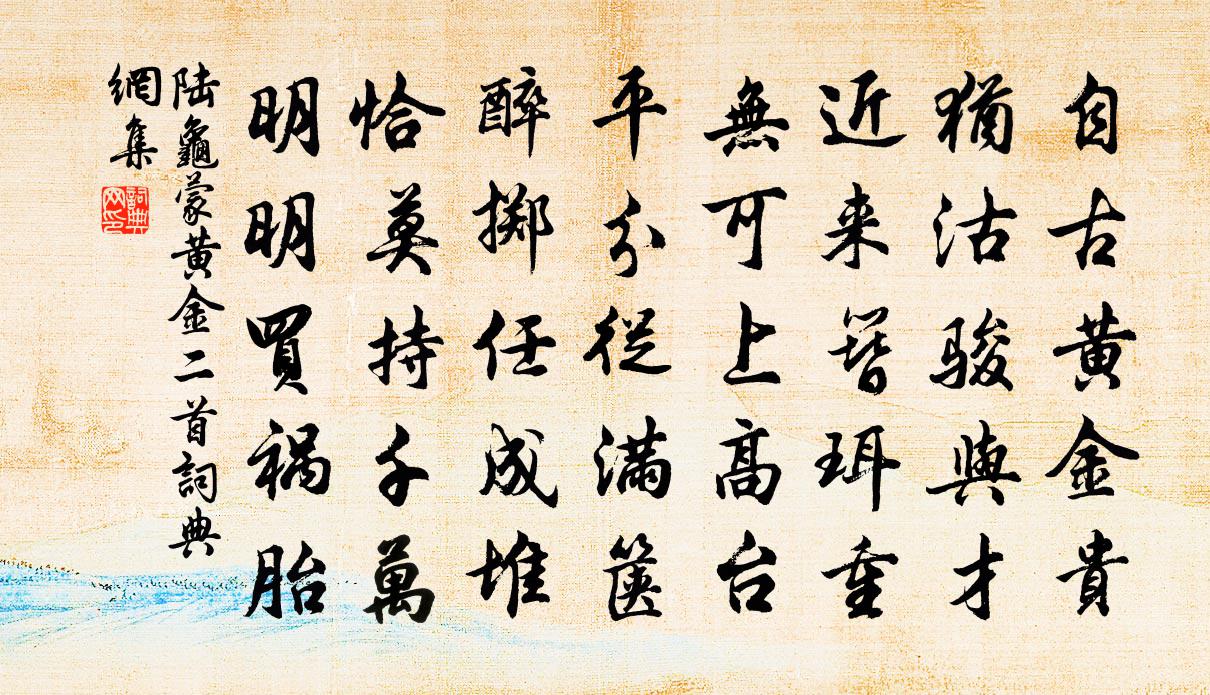 自古黄金貴
猶沽駿與才
近来簪珥重
無可上高台
平分從满篋
醉擲任成堆
恰莫持千萬
明明買禍胎
陆龜蒙黄金二首詞典
網集
詞典
网印